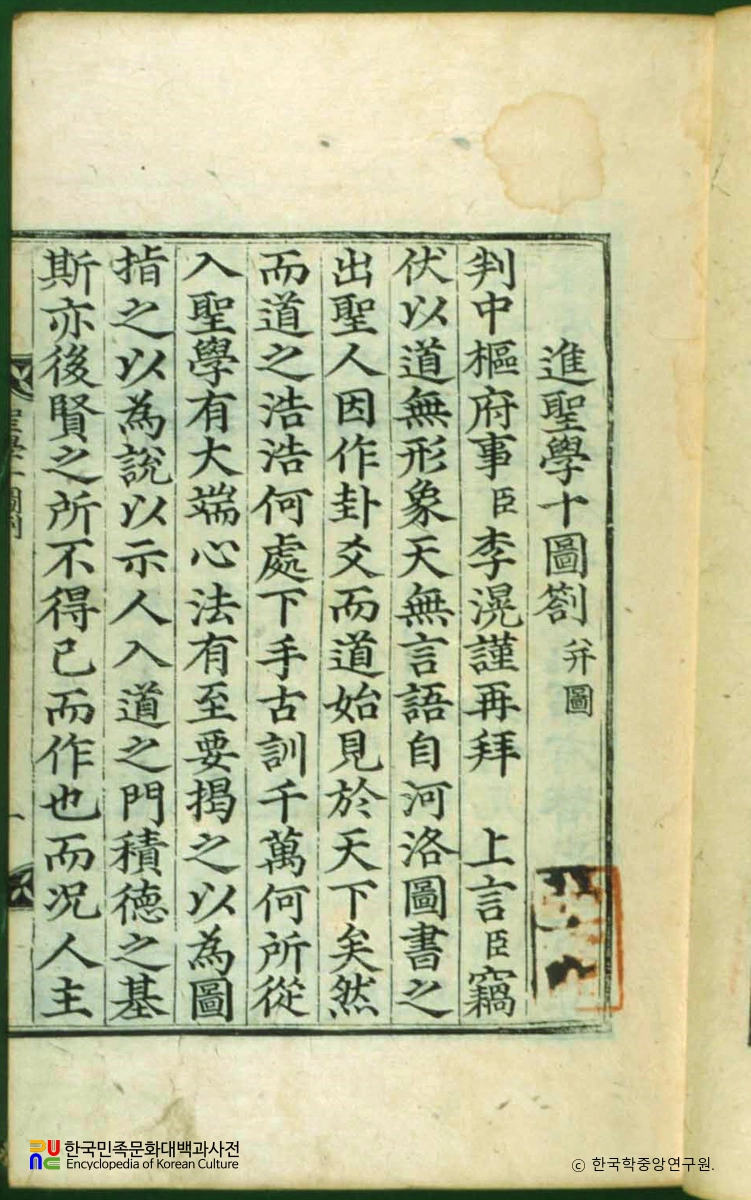 進聖學十圖劄 幷圖
判中樞府事臣李滉謹再拜 上言臣竊
伏以道無形象天無言語自河洛圖書之
出聖人因作卦爻而道始見於天下矣然
而道之浩浩何處下手古訓千萬何所從
入聖學有大端心法有至要揭之以為圖
指之以為說以示人入道之門積德之基
斯亦後賢之所不得已而作也而况人主
한국민족문화대백과사전
Encyclopedia of Korean Culture
ⓒ 한국학중앙연구원.